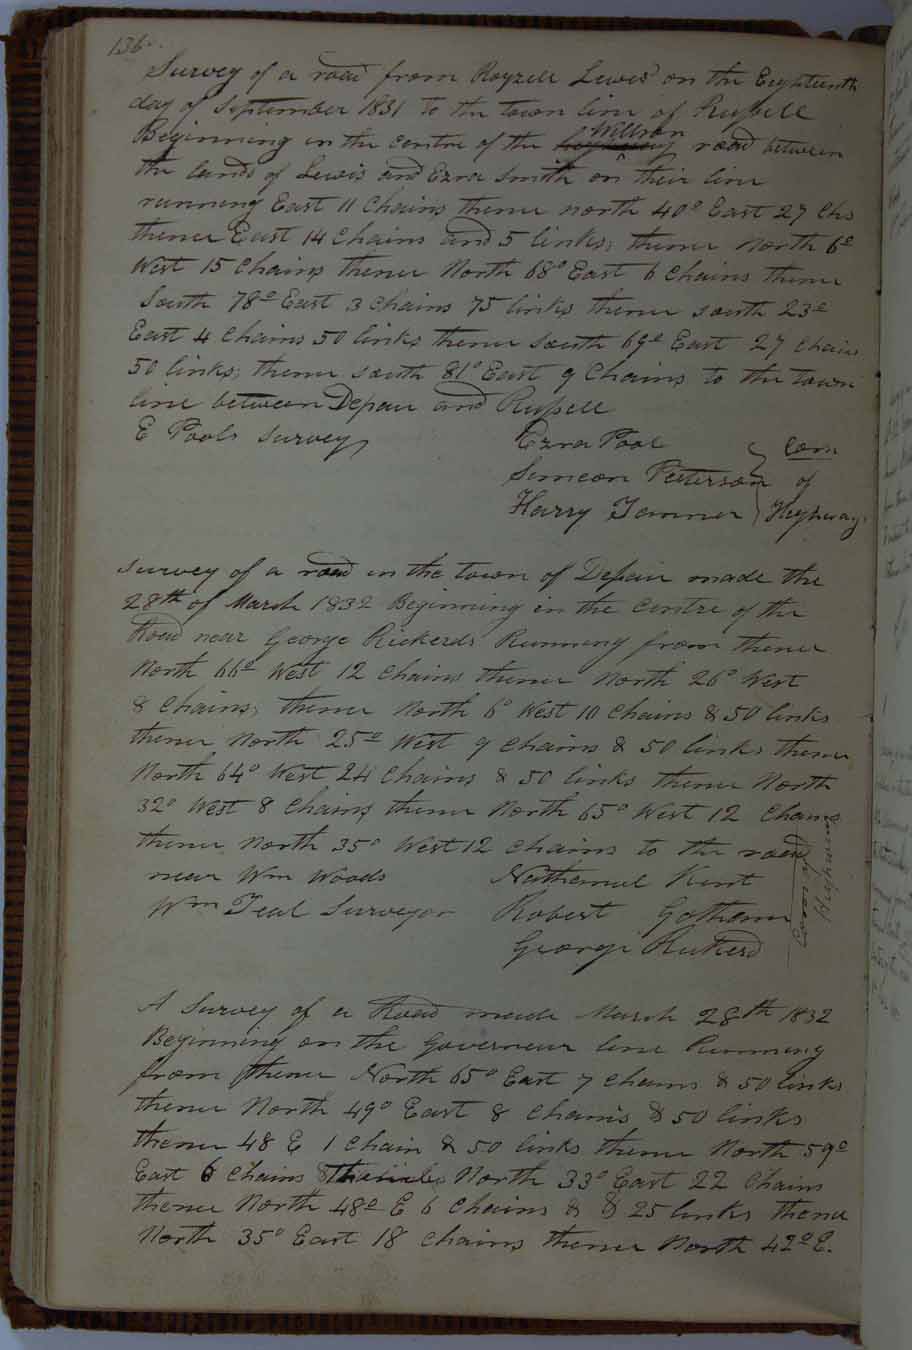 136
Survey of a road from Royzell Lewis' on the Eighteenth
day of September 1831 to the town line of Russell
Beginning in the centre of the Willson road between
the lands of Lewis and Ezra Smith on their line
running East 11 Chains thence north 40° East 27 chs
thence East 14 Chains and 5 links; thence North 6°
West 15 Chains thence North 68° East 6 Chains thence
South 78° East 3 Chains 75 links thence south 23°
East 4 Chains 50 links thence South 69° East 27 Chains
50 links; thence south 81° East 9 Chains to the town
line between Depau and Russell
E Pools Survey
Ezra Pool
Simeon Peterson
Harry Tanner
Com
of
Highway
Survey of a road in the town of Depau made the
28th of March 1832 Beginning in the Centre of the
Road near George Rickerds Running from thence
North 66° West 12 Chains thence North 26° West
8 Chains, thence North 6° West 10 Chains & 50 links
thence North 25° West 9 Chains & 50 links thence
North 64° West 24 Chains & 50 links thence North
32° West 8 Chains thence North 65° West 12 Chains
thence North 35° West 12 Chains to the road
near Wm Woods
Wm Teal Surveyor
Nathaniel Kent
Robert
George Rickerd
A Survey of a Road made March 28th 1832
Beginning on the Governeur line Running
from thence North 65° East 7 Chains & 50 links
thence North 49° East 8 Chains & 50 links
thence 48 E 1 Chain & 50 links thence North 59°
East 6 Chains North 33° East 22 Chains
thence North 48° E 6 Chains & & 25 links thence
North 35° East 18 Chains thence North 42° E.